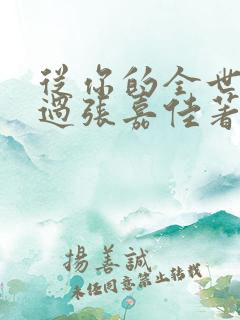 從你的全世
過張嘉佳著
揚善誠
未任同意禁止转载